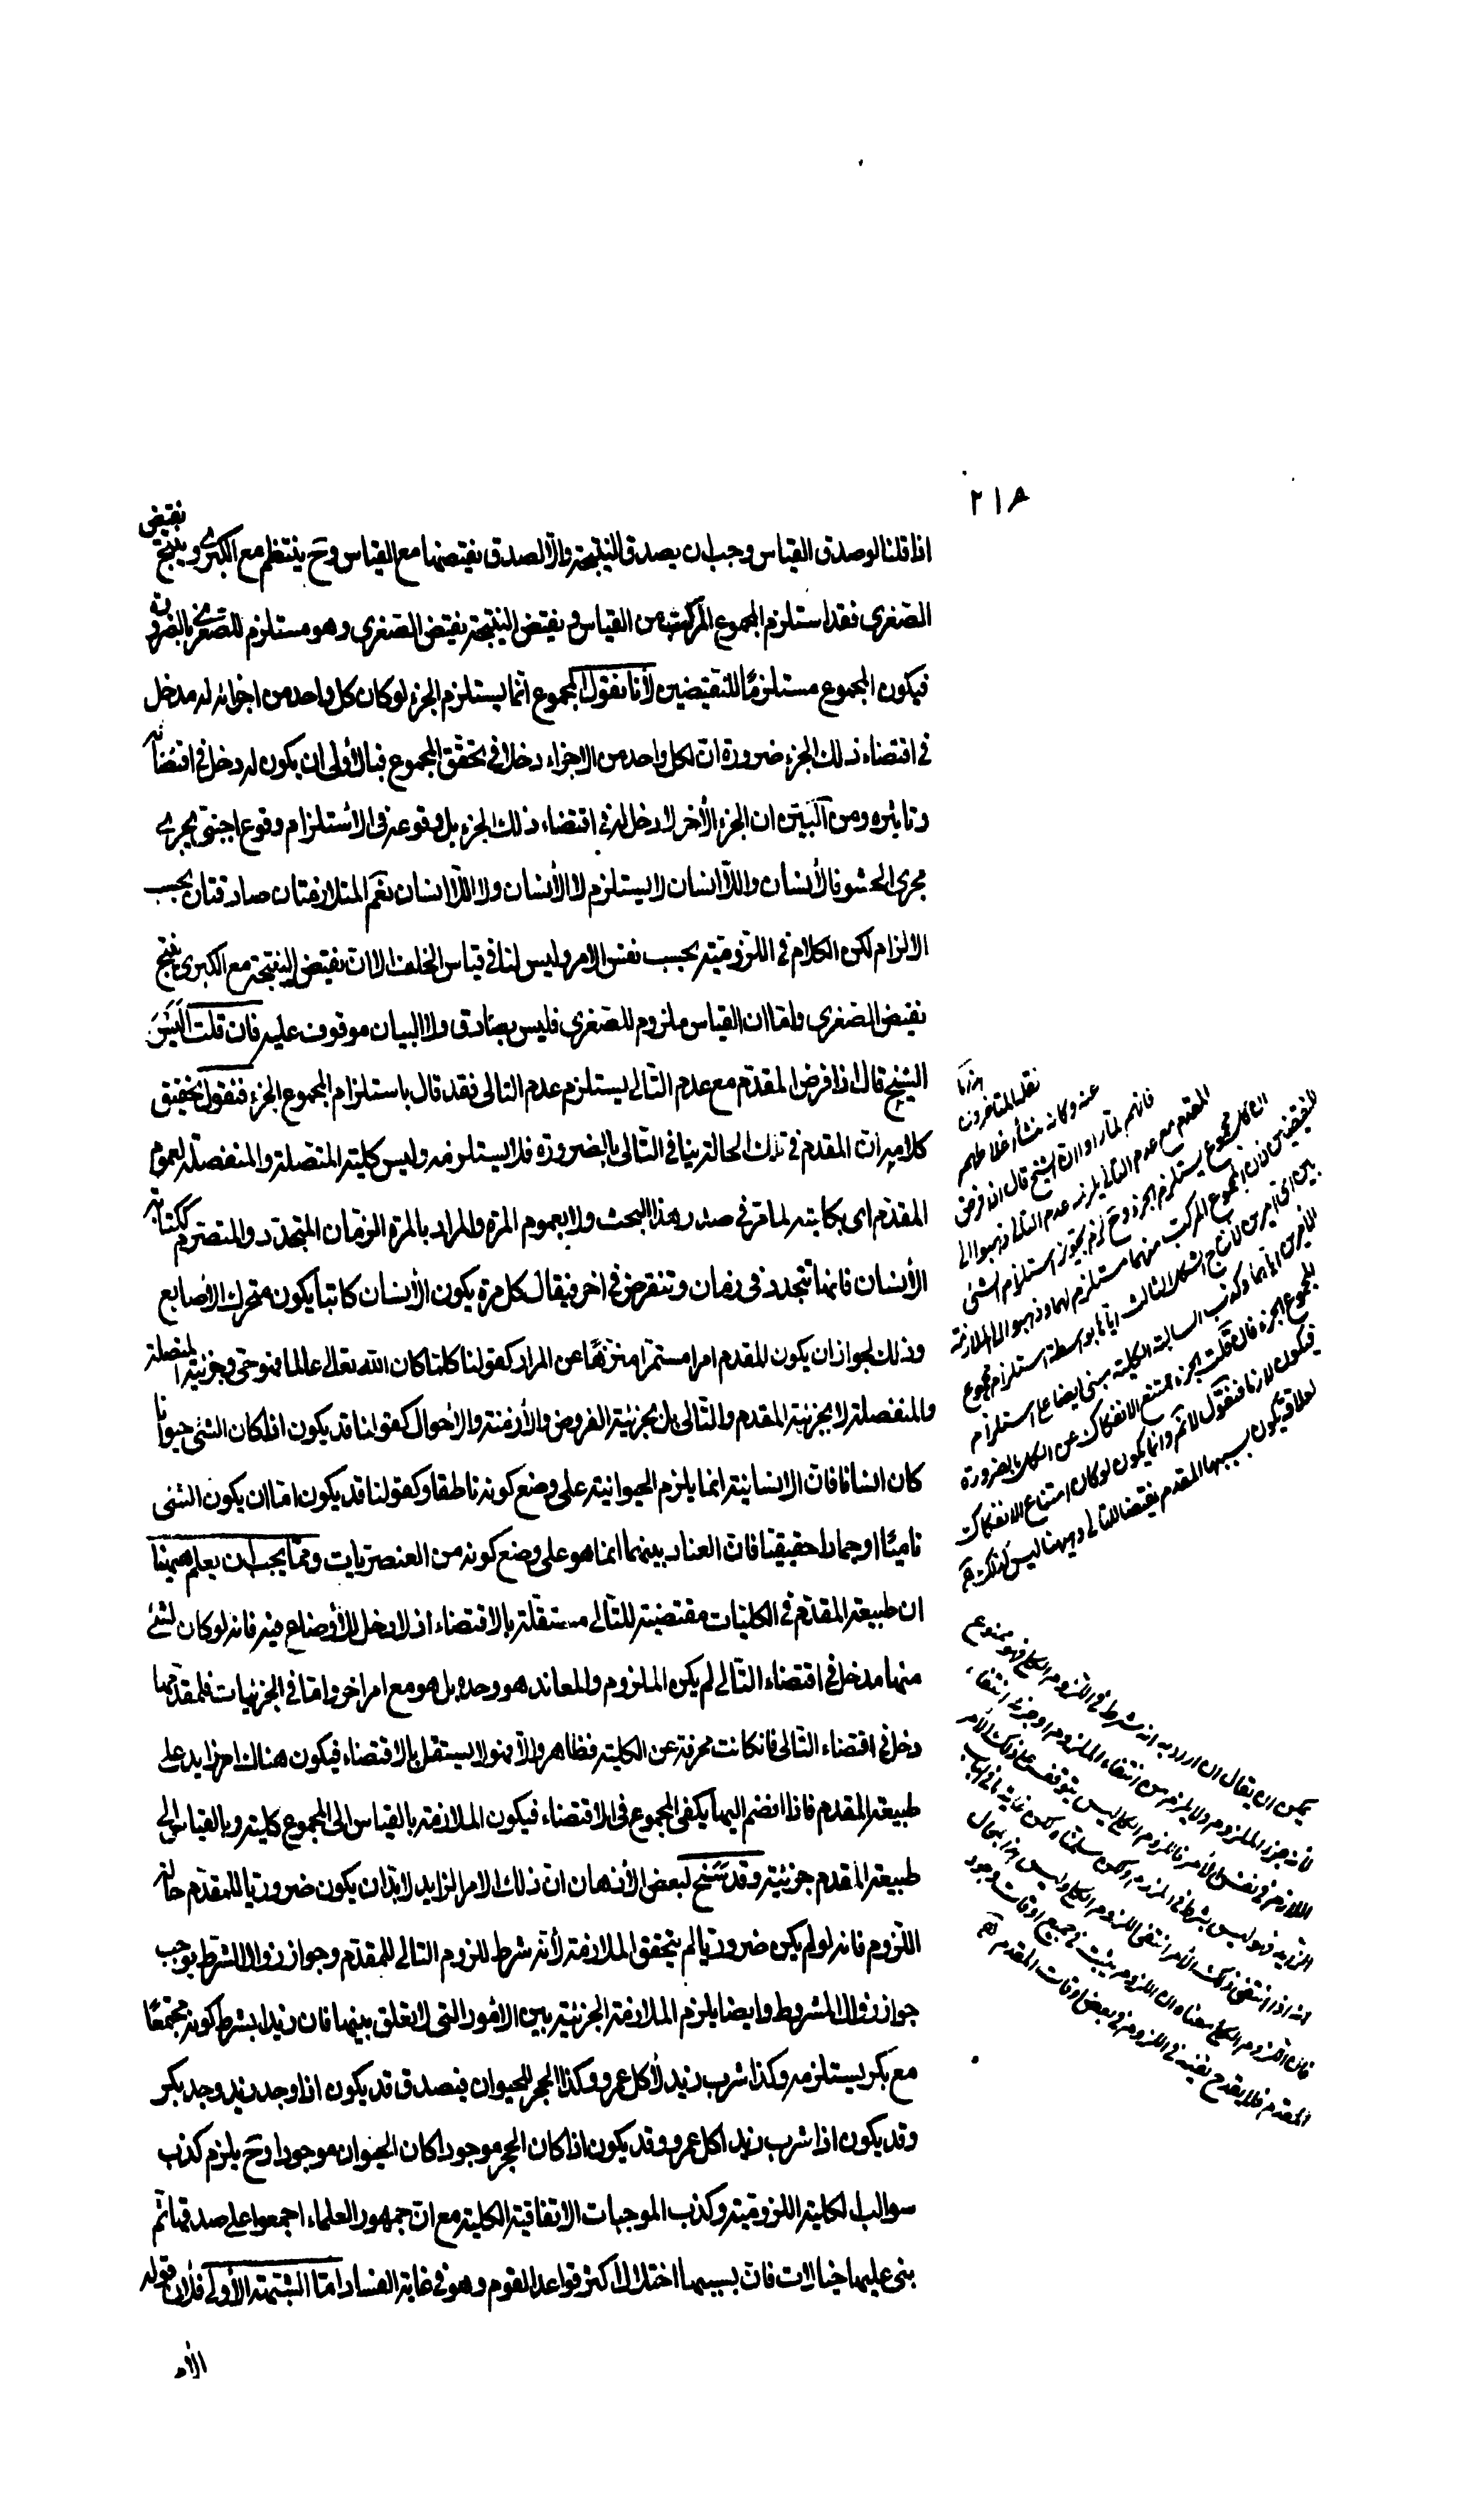 ٢١٨
اذا قلنا لو صدق القياس وجب ان يصدق النتيجة والا لصدق نقيضها مع القياس وح ينتظم مع الكبرى وينتج نقيض
الصغرى فقد استلزم المجموع المركب من القياس و نقيض النتيجة نقيض الصغرى وهو مستلزم للصغرى بالضرورة
فيكون المجموع مستلزمًا للنقيضين لأنا نقول المجموع انما يستلزم الجزء لو كان كل واحد من اجزائه له مدخل
في اقتضاء ذلك الجزء ضرورة ان لكل واحد من الاجزاء دخلا في تحقق المجموع فبالأولى ان يكون له دخل في اقتضائه
وتاثيره ومن البيّن ان الجزء الأخر لا دخل له في اقتضاء ذلك الجزء بل وقوعه في الأستلزام وقوع اجنبي يجرى
مجرى الحشو فالأنسان واللاانسان لا يستلزم لا الأنسان ولا اللاانسان نعم المتلازمتان صادقتان بحسب
الالزام لكن الكلام في اللزومية بحسب نفس الامر وليس لنا في قياس الخلف الا ان نقيض النتيجة مع الكبرى ينتج
نقيض الصغرى واما ان القياس ملزوم للصغرى فليس بصادق ولا البيان موقوف عليه فان قلت اليس
الشيخ قال اذا فرض المقدم مع عدم التالى يستلزم عدم التالى فقد قال باستلزام المجموع الجزء فنقول تحقيق
كلامه ان المقدم في تلك الحالة ينافي التالى بالضرورة فلا يستلزمه وليس كلية المتصلة والمنفصلة لعموم
المقدم اى بكليته لما مر في صدر هذا البحث ولا بعموم المرة والمراد بالمرة الزمان المتجدد والمتصرم ككتابة
الأنسان فانها تتجدد فى زمان وتنقرض في اخر فيقال كل مرة يكون الأنسان كاتبا يكون متحرك الأصابع
وذلك لجواز ان يكون المقدم امرا مستمرا منزهًا عن المرار كقولنا كلما كان الله تعالى عالما فهو حى وجزئية المتصلة
والمنفصلة لا بجزئية المقدم والتالى بل بجزئية الفروض والأزمنة والأحوال كقولنا قد يكون اذا كان الشئ حيوانا
كان انسانا فان الانسانية انما يلزم الحيوانية على وضع كونه ناطقا وكقولنا قد يكون اما ان يكون الشئ
ناميًا او جمادا حقيقيا فان العناد بينهما انما هو على وضع كونه من العنصريات ومما يجب ان يعلم ههنا
ان طبيعة المقدم في الكليات مقتضية للتالى مستقلة بالاقتضاء اذ لا دخل للأوضاع فيه فانه لو كان لشئ
منها مدخل في اقتضاء التالى لم يكن الملزوم والمعاند هو وحده بل هو مع امر اخر واما في الجزئيات فلمقدمها
دخل في اقتضاء التالى فان كانت محرفة عن الكلية فظاهر والا فهو لا يستقل بالاقتضاء فيكون هناك امر زايد على
طبيعة المقدم فاذا انضم اليها يكفى المجموع فى الاقتضاء فيكون الملازمة بالقياس الى المجموع كلية وبالقياس الى
طبيعة المقدم جزئية وقد سنح لبعض الأذهان ان ذلك الامر الزايد لا بد ان يكون ضروريا للمقدم حالة
اللزوم فانه لو لم يكن ضروريا لم يتحقق الملازمة لأنه شرط للزوم التالى للمقدم وجواز زوال الشرط يوجب
جواز زوال المشروط وايضا يلزم الملازمة الجزئية بين الأمور التى لا تعلق بينها فان زيدا بشرط كونه مجتمعًا
مع بكر يستلزمه وكذا شرب زيد لأكل عمرو وكذا الحجر للحيوان فيصدق قد يكون اذا وجد زيد وجد بكر
وقد يكون اذا شرب زيد اكل عمرو وقد يكون اذا كان الحجر موجودا كان الحيوان موجودا وح يلزم كذب
سوالب الكلية اللزومية وكذب الموجبات الاتفاقية الكلية مع ان جمهور العلماء اجمعوا على صدقها ثم
بنى عليها خيالات فان بسببها اختلال اكثر قواعد القوم وهو في غاية الفساد اما الشبهة الأولى فلأن قوله
الأمر
هذا ما
نقله المتأخرون
عنه وكانه منشأ اغلاطهم
فانهم لما راوا ان الشيخ قال اذا فرض
المقدم مع عدم التالى يلزمه عدم التالى ذهبوا الى
ان كل مجموع يستلزم الجزء وح لزم تجويز استلزام الشئ
للنقيضين لان المجموع المركب منهما مستلزم لهما وذهبوا الى الملازمة
بين اى امرين لانتاج الشكل الثالث اياها بواسطة استلزام مجموع
الامرين اياهما وكذب السالبة الكلية مبنى ايضا على استلزام
المجموع الجزء فان قلت الجزء ممتنع الانفكاك عن الكل بالضرورة
فيكون لازما فنقول لا نم وانما يكون لو كان امتناع الانفكاك
لعلاقة يكون بسببها المقدم مقتضيا للتالى وههنا ليس كذلك
يمكن ان يقال ان اراد به انه شرط في اللزوم الكلى فهو ممنوع
لانه جزء الملزوم ولا يلزم من انتفاء الملزوم او جزئه انتفاء
اللازم في نفس الأمر فاللزوم الكلى ليس يتوقف على ذلك الأمر